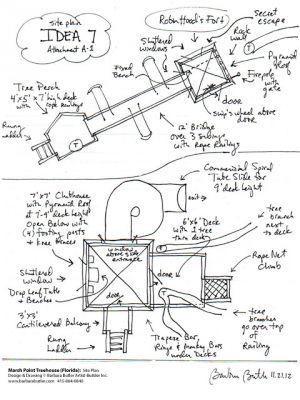 site plan
IDEA 7
Attachment A-1
Robin Hood's Fort
secret
escape
Shuttered
windows
Rock
wall
Fixed
Bench
Pyramid
Roof
Firepole with
gate
Tree Perch
4'x5' x 7' high deck
with rope railings
door
ship's wheel
above door
Rung
Ladder
12' Bridge
over 3 swings
with Rope Railings
T
T
Commercial Spiral
Tube Slide for
9' deck height
exit
7'x7' Clubhouse
with Pyramid Roof
at 7'-9" deck height
Open Below with
(4) footing posts
+ knee braces
6'x6' Deck
with 1 tree
thru deck
tree
branch
next to
deck
window
above slide
entrance
Shuttered
window
door
T
Rope Net
Climb
Drop Leaf Table
+ Benches
door
3'x3'
Cantilevered Balcony
Rung
Ladder
Trapeze Bar,
Rings & Monkey Bars
under Decks
tree
branches
go over top
of
Railing
Barbara Butler 11.21.12
Marsh Point Treehouse (Florida): Site Plan
Design & Drawing © Barbara Butler Artist-Builder Inc.
www.barbarabutler.com 415-864-6840